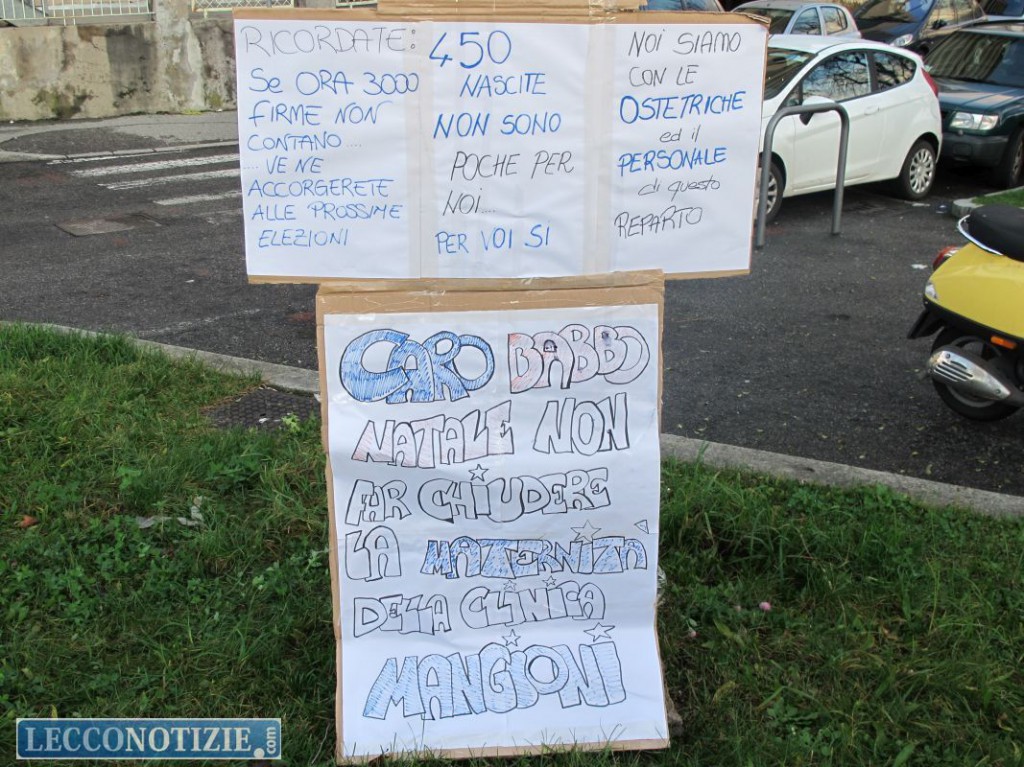 RICORDATE:
SE ORA 3000
FIRME NON
CONTANO....
....VE NE
ACCORGERETE
ALLE PROSSIME
ELEZIONI
450
NASCITE
NON SONO
POCHE PER
NOI....
PER VOI SI
NOI SIAMO
CON LE
OSTETRICHE
ed il
PERSONALE
di questo
REPARTO
CARO BABBO
NATALE NON
FAR CHIUDERE
LA MATERNITÀ
DELLA CLINICA
MANGIONI
LECCONOTIZIE.com